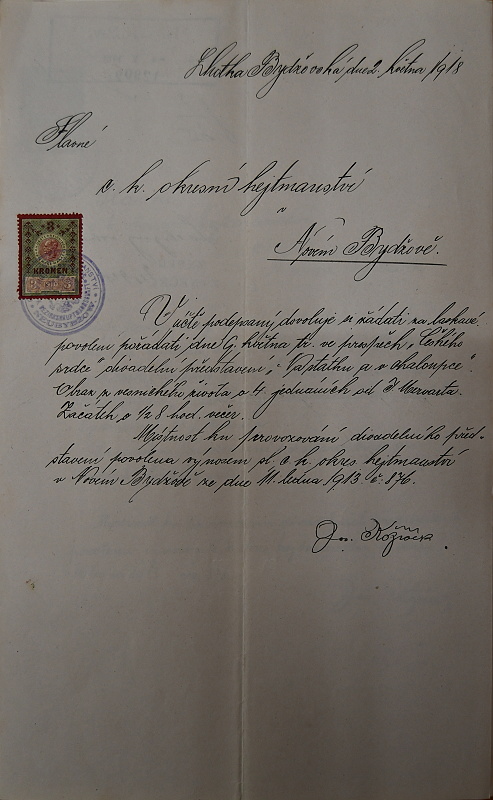 Lhotka Bydžovská dne 2. května 1918
Slavné
c. k. okresní hejtmanství
v
Novém Bydžově.
3
KRONEN
V úctě podepsaný dovoluje si žádati za laskavé
povolení pořádati dne 9. května t.r. ve prospěch „Českého
srdce" divadelní představení, „Na statku a v chaloupce".
Obraz z vesnického života o 4 jednáních od F. Marvarta.
Začátek o ½8 hod. večer.
Místnost ku provozování divadelního před-
stavení povolena výnosem sl. c. k. okres. hejtmanství
v Novém Bydžově ze dne 11. ledna 1913 č. 876.
Jos.